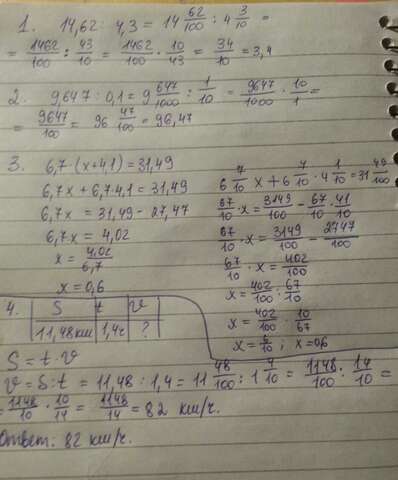 1. 14,62 : 4,3 = 14 62/100 : 4 3/10 =
= 1462/100 : 43/10 = 1462/100 · 10/43 = 34/10 = 3,4
2. 9,647 : 0,1 = 9 647/1000 : 1/10 = 9647/1000 · 10/1 =
= 9647/100 = 96 47/100 = 96,47
3. 6,7 · (x+4,1) = 31,49
6,7x + 6,7·4,1 = 31,49
6,7x = 31,49 - 27,47
6,7x = 4,02
x = 4,02/6,7
x = 0,6
6 7/10 x + 6 7/10 · 4 1/10 = 31 49/100
67/10 · x = 3149/100 - 67/10 · 41/10
67/10 · x = 3149/100 - 2747/100
67/10 · x = 402/100
x = 402/100 : 67/10
x = 402/100 · 10/67
x = 6/10 ; x = 0,6
4. S t v
11,48км 1,4г ?
S = t · v
v = S : t = 11,48 : 1,4 = 11 48/100 : 1 4/10 = 1148/100 : 14/10 =
= 1148/10 · 10/14 = 1148/14 = 82 км/г.
Ответ: 82 км/г.